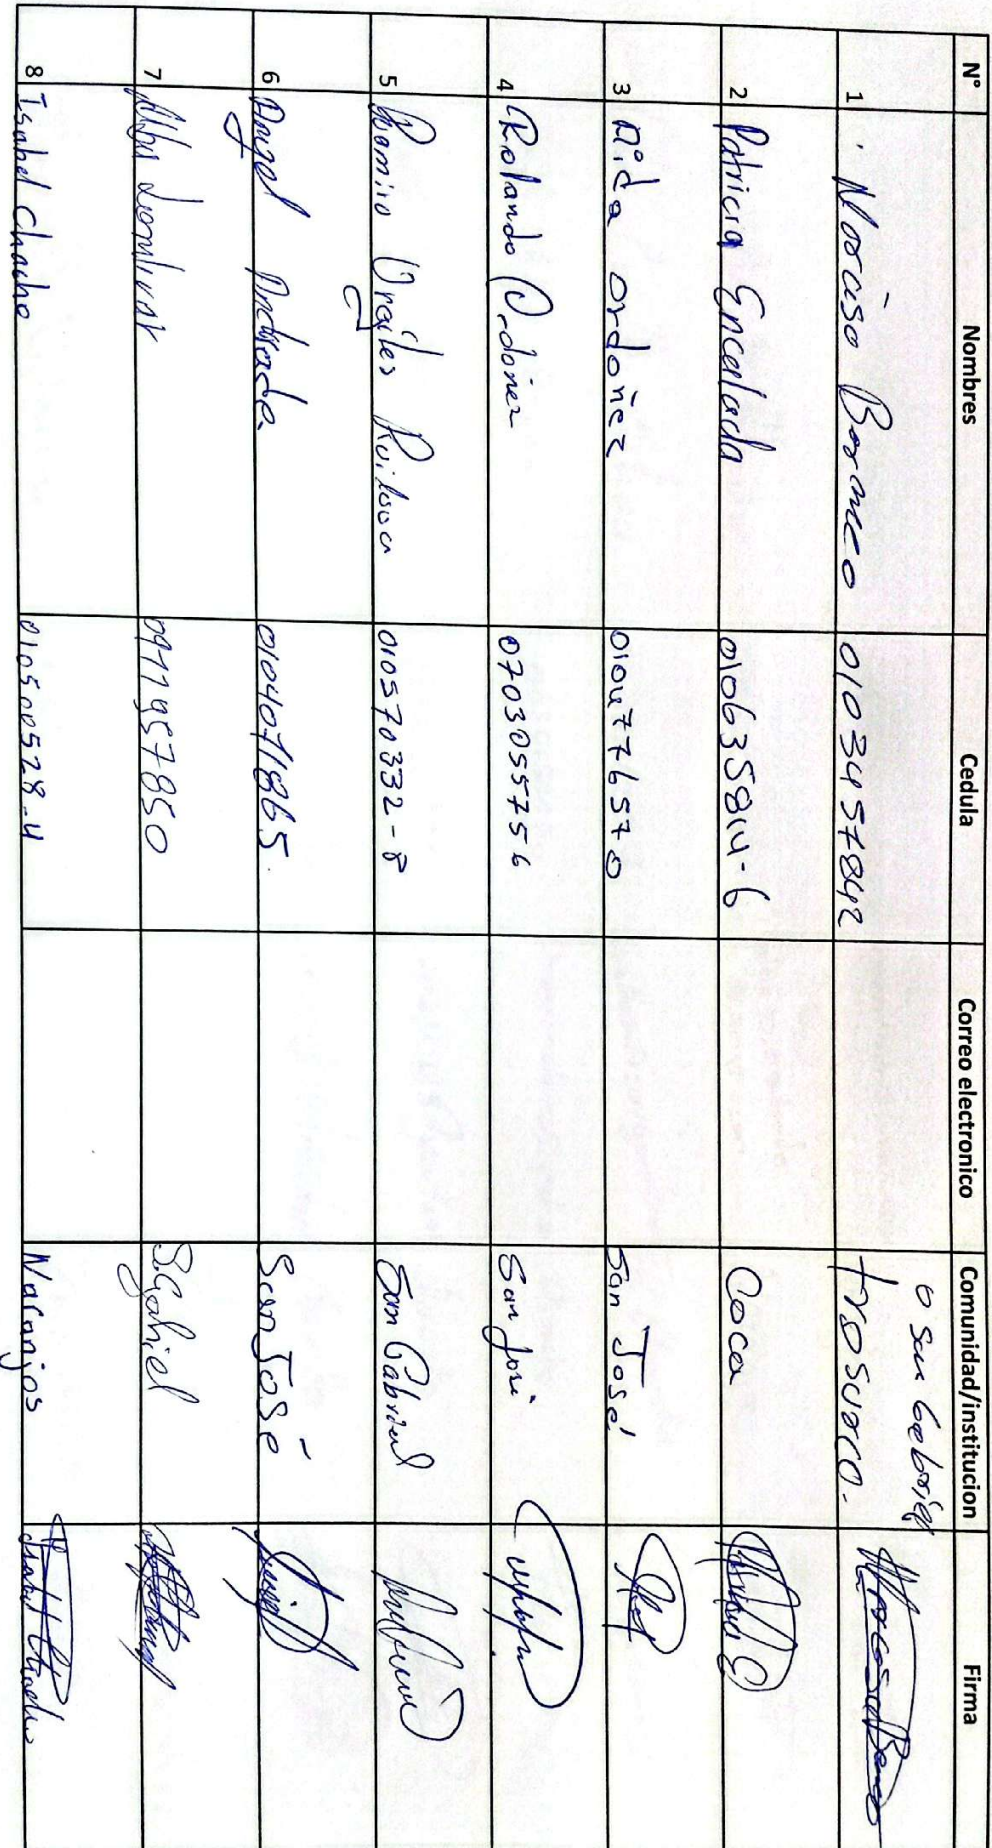 N° Nombres Cedula Correo electronico Comunidad/institucion Firma
1 Narciso Barraco 0103457842 o San Gabriel
2 Patricia Encalada 010635814-6 Coca
3 Aida Ordoñez 0104776570 San José
4 Rolando Ordoñez 0703055756 San José
5 Ramiro 010570332-8 San Gabriel
6 Angel Andrade 0104071865. San José
7 Alba 0911957850
8 Isabel Chacho 010500528-4 Naranjos